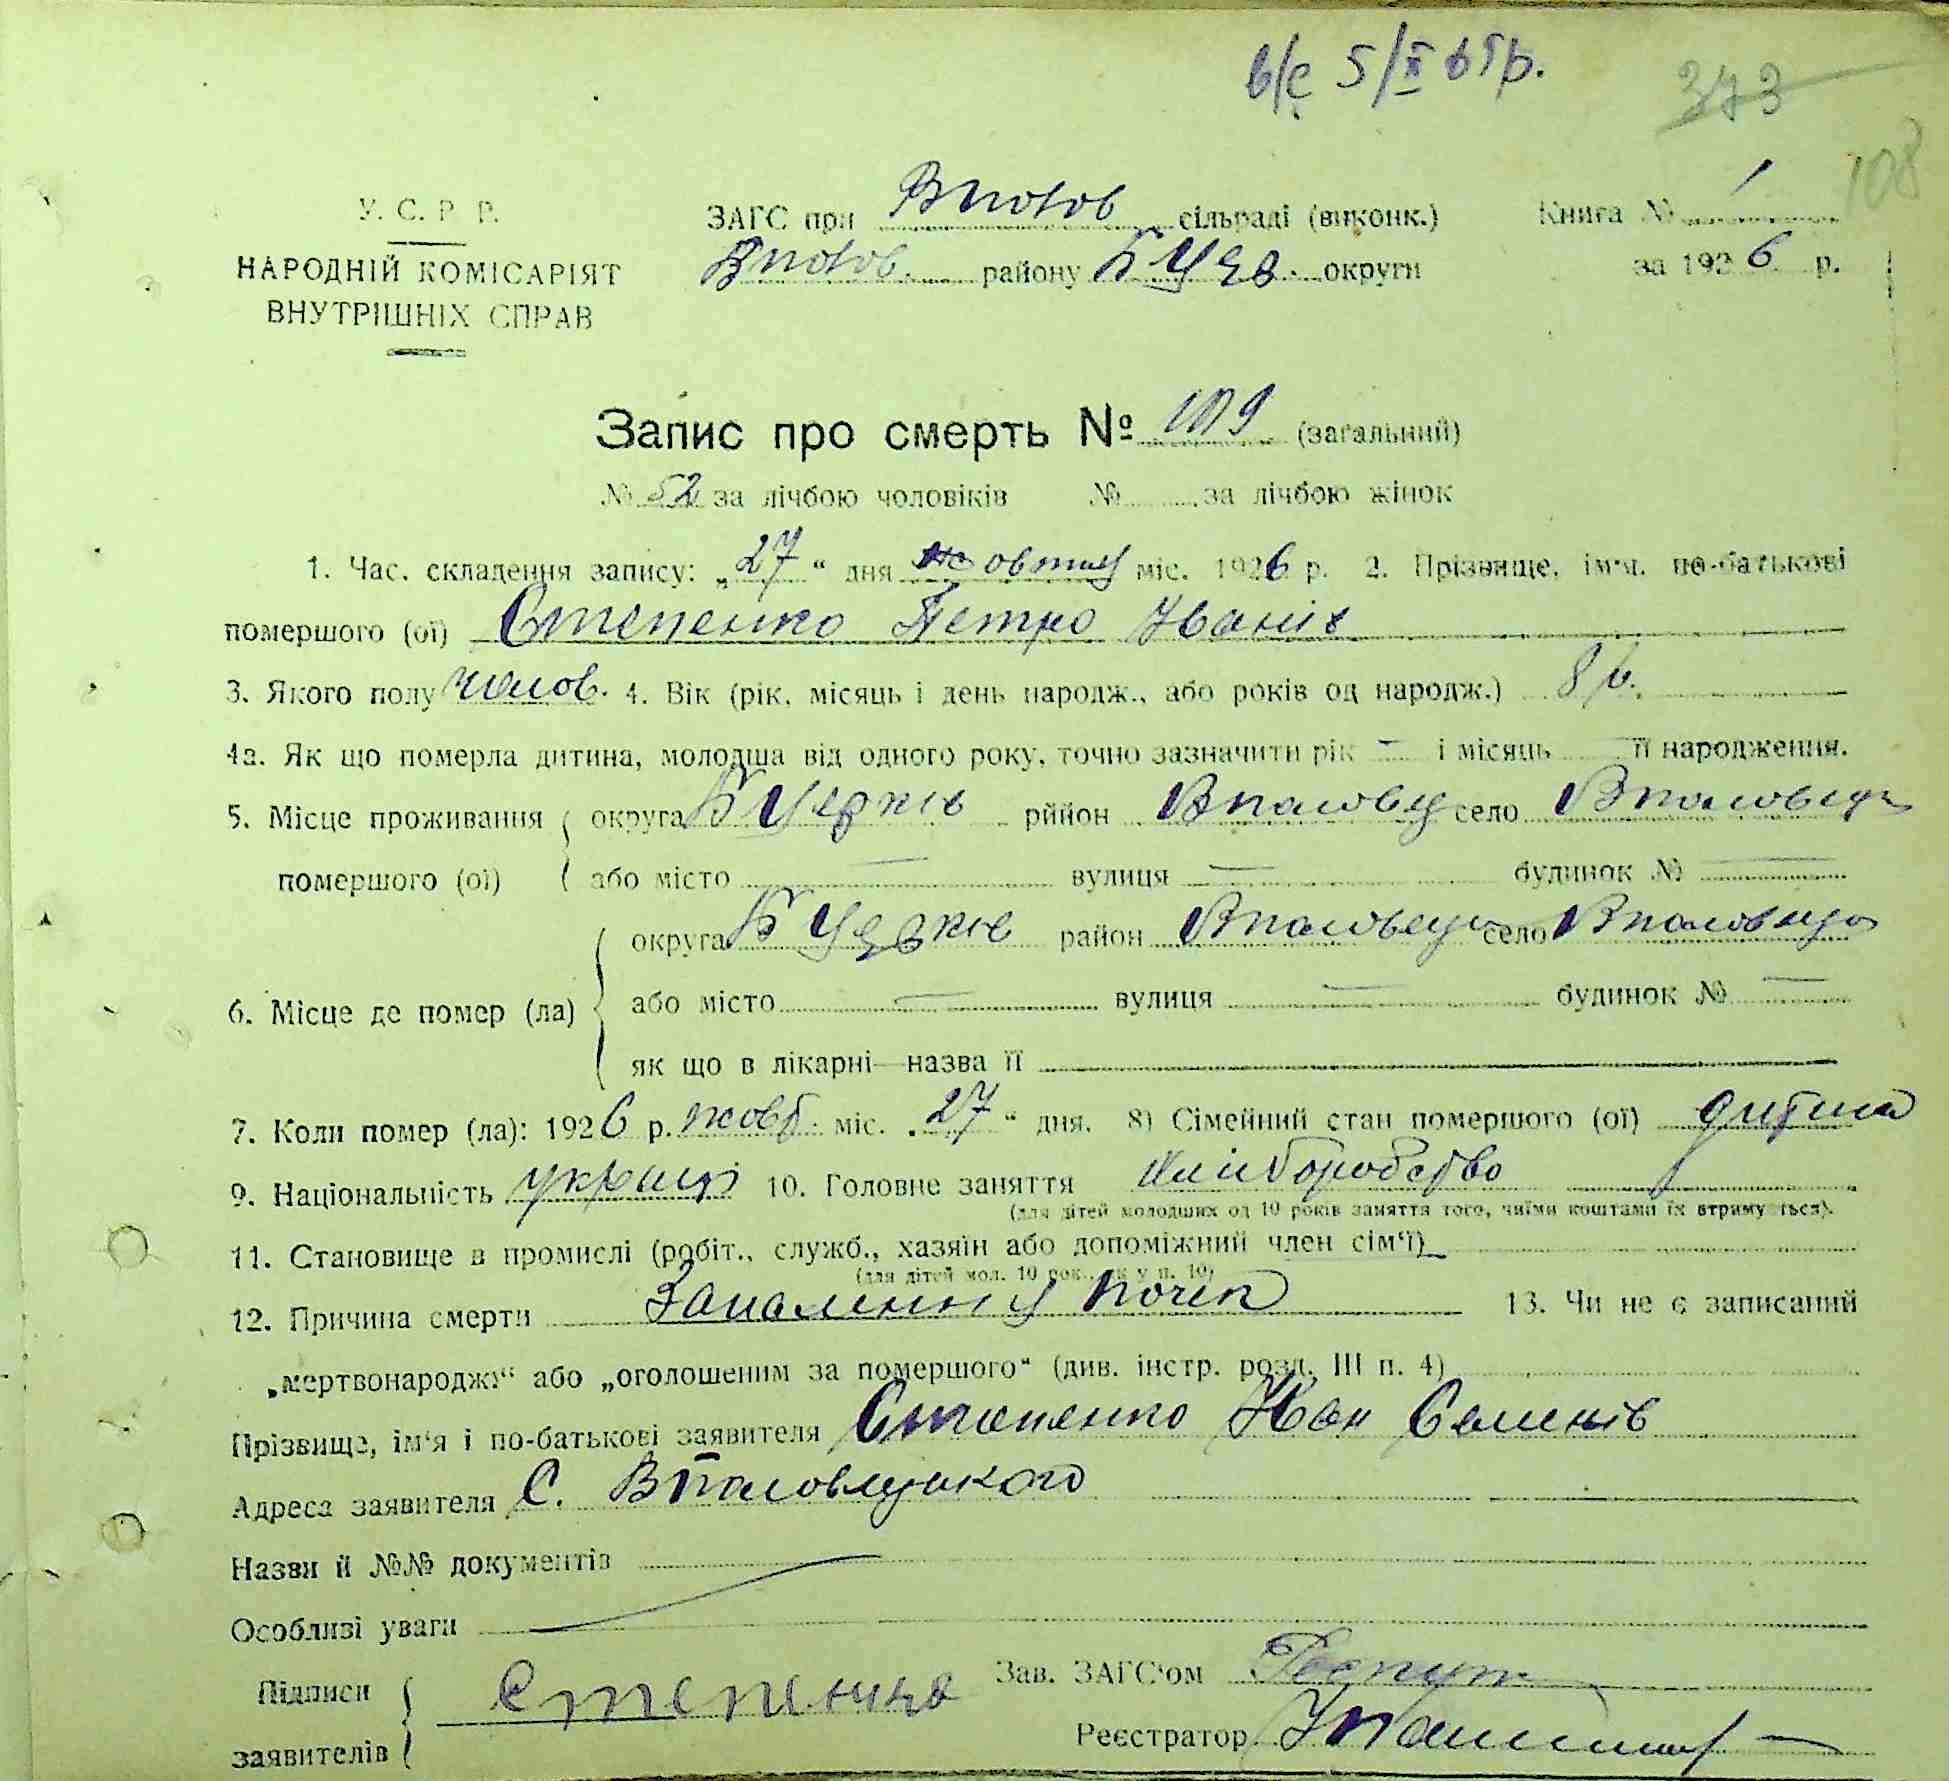 в/с 5/X 65р.
373
108
У. С. Р. Р.
НАРОДНІЙ КОМІСАРІЯТ
ВНУТРІШНІХ СПРАВ
ЗАГС при Вполов сільраді (виконк.)
Вполов. району Б Церк. округи
Книга № 1
за 1926 р.
Запис про смерть № 109 (загальний)
№ 52 за лічбою чоловіків № за лічбою жінок
1. Час. складення запису: „27“ дня жовтня міс. 1926 р. 2. Прізвище, ім'я, по-батькові
помершого (ої) Степенко Петро Іванів
3. Якого полу чолов. 4. Вік (рік, місяць і день народж., або років од народж.) 8 р.
4а. Як що померла дитина, молодша від одного року, точно зазначити рік — і місяць — її народження.
5. Місце проживання округа Б Церків рййон Вполовец село Вполовецьк
помершого (ої) або місто — вулиця — будинок № —
округа Б Церків район Вполовец село Вполовецьк
6. Місце де помер (ла) або місто — вулиця — будинок № —
як що в лікарні—назва її
7. Коли помер (ла): 1926 р. жовт. міс. „27“ дня. 8) Сімейний стан помершого (ої) дитина
9. Національність україн 10. Головне заняття хліборобство
(для дітей молодших од 10 років заняття того, чиїми коштами їх втримується).
11. Становище в промислі (робіт., служб., хазяїн або допоміжний член сім'ї)
(для дітей мол. 10 рок., як у п. 10)
12. Причина смерти Запалення почек 13. Чи не є записаний
„мертвонародж.“ або „оголошеним за помершого“ (див. інстр. розд. III п. 4)
Прізвище, ім'я і по-батькові заявителя Степенко Іван Семенів
Адреса заявителя С. Вполовецького
Назви й №№ документів
Особливі уваги
Підписи Степенко Зав. ЗАГС'ом
заявителів Реєстратор